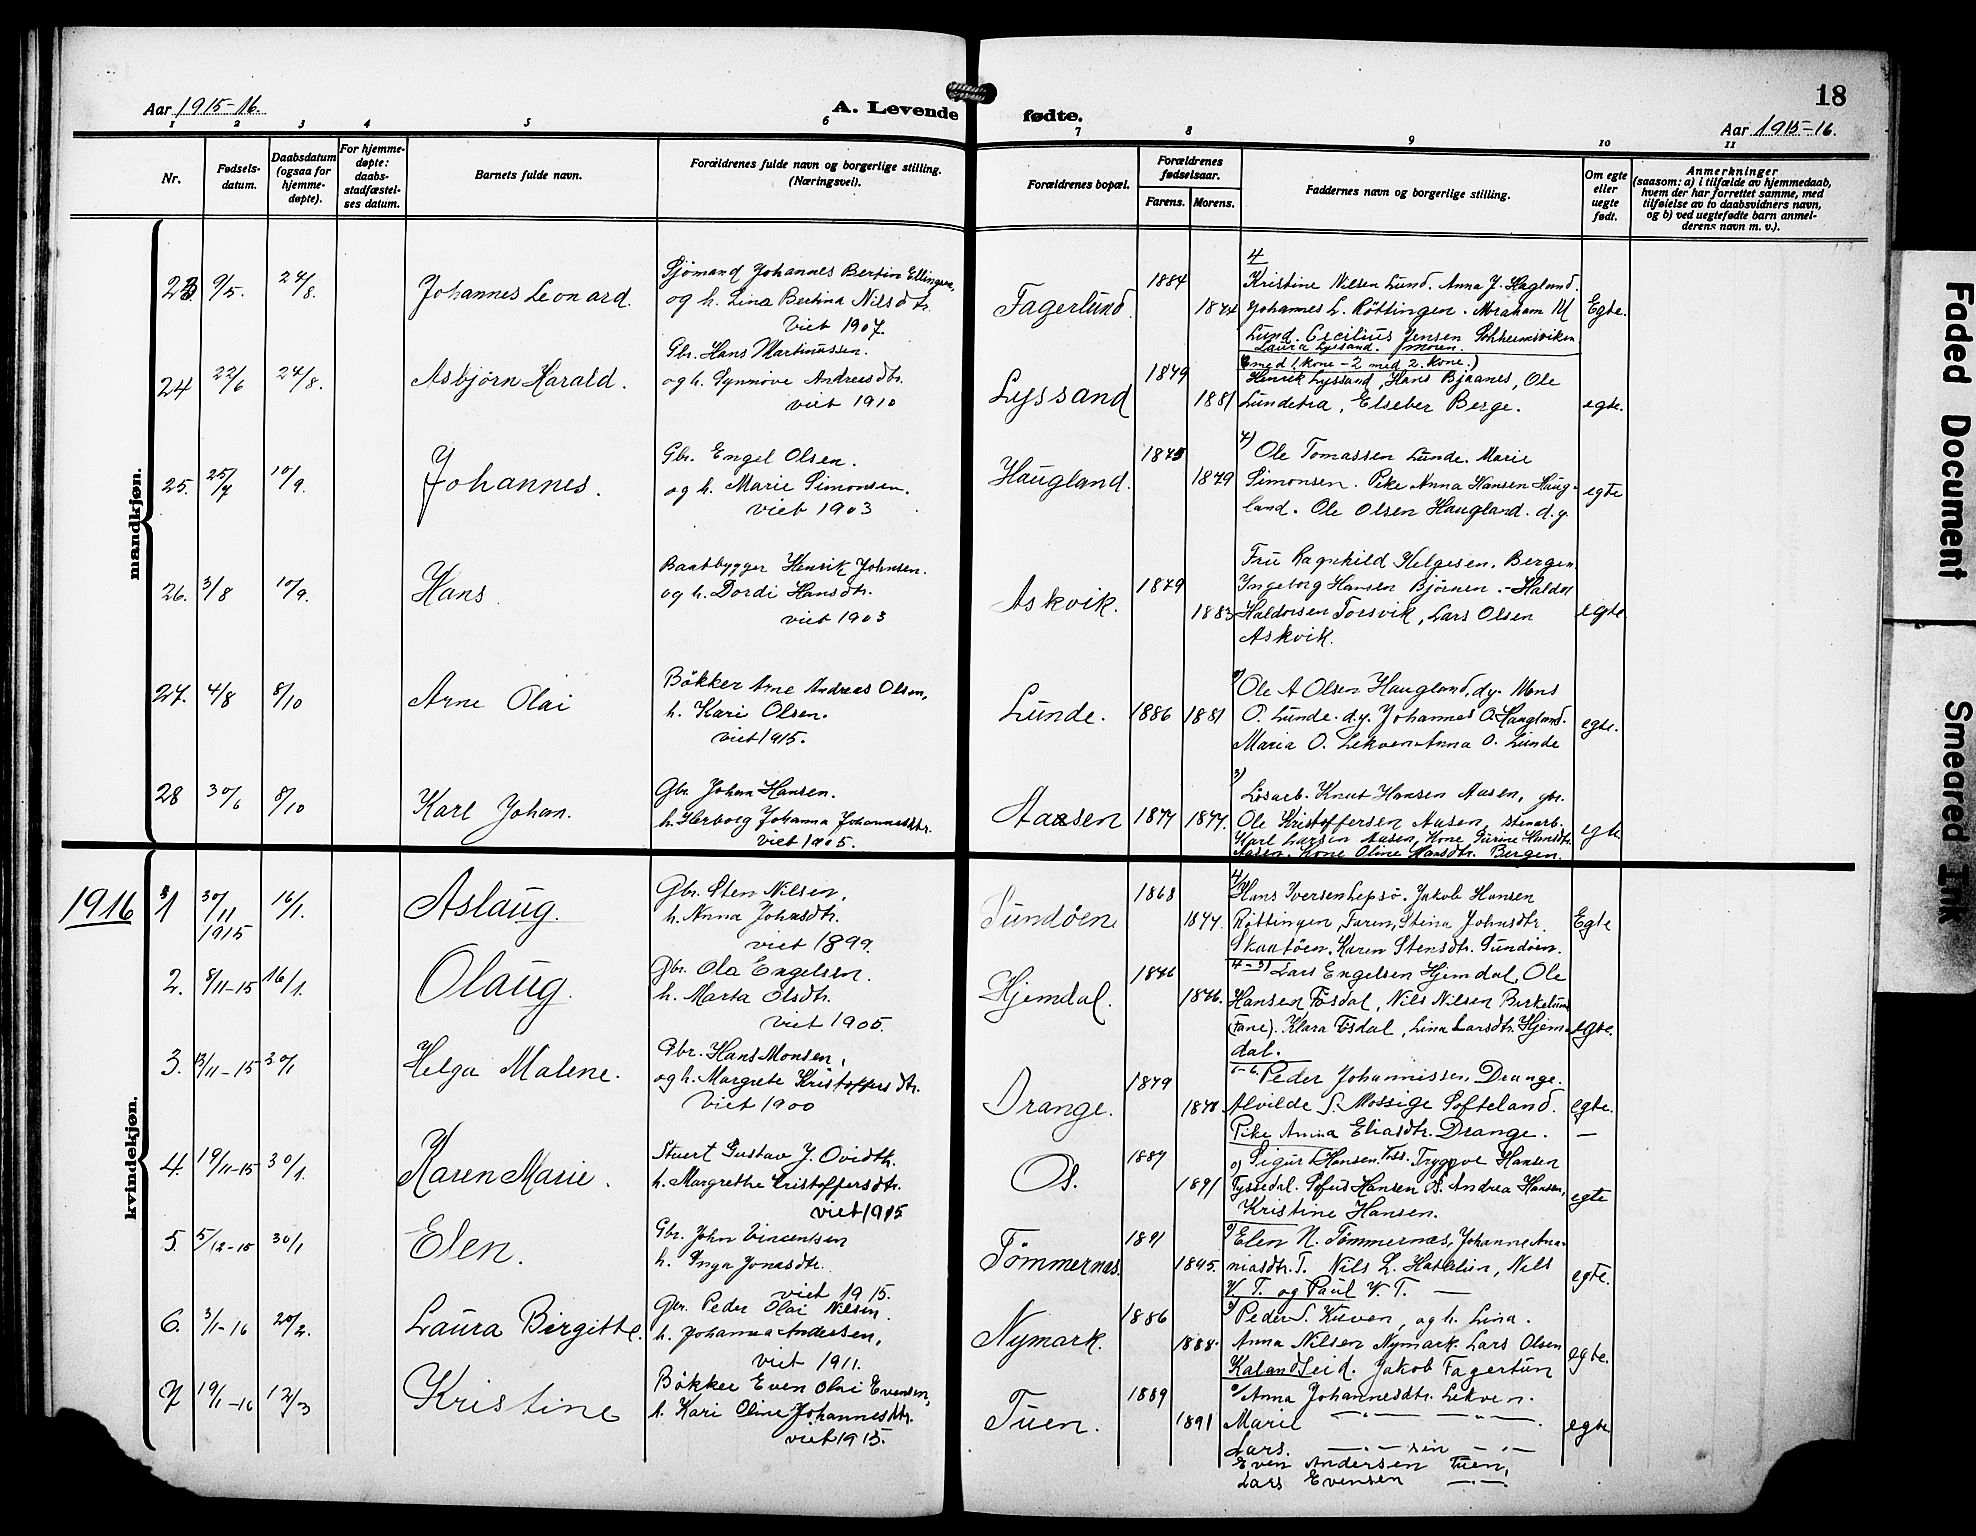 18
Aar 1915-16.
A. Levende fødte.
Aar 1915-16.
1 2 3 4 5 6 7 8 9 10 11
Nr.
Fødsels-
datum.
Daabsdatum
(ogsaa for
hjemme-
døpte).
For hjemme-
døpte:
daabs-
stadfæstel-
ses datum.
Barnets fulde navn.
Forældrenes fulde navn og borgerlige stilling.
(Næringsvei).
Forældrenes bopæl.
Forældrenes
fødselsaar.
Farens. Morens.
Faddernes navn og borgerlige stilling.
Om egte
eller
uegte
født.
Anmerkninger
(saasom: a) i tilfælde av hjemmedaab,
hvem der har forrettet samme, med
tilføielse av to daabsvidners navn,
og b) ved uegtefødte barn anmel-
derens navn m. v.).
mandkjøn.
23 9/5. 24/8. Johannes Leonard.
Sjømand Johannes Bertin Ellingsen,
og h. Lina Bertina Nilsdtr.
viet 1907.
Fagerlund. 1884 1874
4
Kristine Nilsen Lund. Anna J. Hagland.
Johannes L. Røttingen. Abraham M
Lund. Cecilius Jensen
Laura Lyssand. moren.
Egte.
24 22/6 24/8. Asbjørn Harald.
Gbr. Hans Martinussen.
og h. Synnøve Andreasdtr.
viet 1910
Lyssand 1849 1881
med 1. kone - 2 med 2. kone.)
Henrik Lyssand, Hans Bjaanes, Ole
Lundetræ, Elseber Berge.
egte.
25. 25/7 10/9. Johannes.
Gbr. Engel Olsen.
og h. Marie Simonsen.
viet 1903
Haugland. 1875 1879
4) Ole Tomassen Lunde. Marie
Simonsen. Pike Anna Hansen Haug-
land. Ole Olsen Haugland. d.y.
egte
26. 3/8 10/9. Hans
Baatbygger Henrik Johnsen.
og h. Dordi Hansdtr.
viet 1903
Askvik. 1879 1883
Fru Ragnhild Helgesen. Bergen
Ingeborg Hansen Bjørnen. - Haldor
Haldorsen Torsvik, Lars Olsen
Askvik.
egte
27. 4/8 8/10 Arne Olai
Bøkker Arne Andreas Olsen,
h. Kari Olsen.
viet 1915.
Lunde. 1886 1881
Ole A Olsen Haugland, d.y. Mons
O. Lunde. d.y. Johannes O. Haugland.
Maria O. Lekven Anna O. Lunde
egte.
28 30/6 8/10 Karl Johan.
Gbr. Johan Hansen.
h. Herborg Johanna Johannesdtr.
viet 1905.
Aasen 1877 1877.
3)
Løsarb. Knut Hansen Aasen, gbr.
Ole Kristoffersen Aasen, stenarb.
Karl Larsen Aasen, Kone Gurine Hansdtr.
Aasen, Kone Oline Hansdtr. Bergen.
egte
1916
kvindekjøn.
1 30/11 1915 16/1. Aslaug.
Gbr. Sten Nilsen,
h. Anna Johnsdtr.
viet 1899.
Sundøen 1868 1877.
4/ Hans Iversen Lepsø. Jakob Hansen
Røttingen, Faren, Stina Johnsdtr.
Skaatøen. Karen Stensdtr. Sundøen.
Egte
2. 8/11-15 16/1. Olaug.
Gbr. Ola Engelsen.
h. Marta Olsdtr.
viet 1905.
Hjemdal. 1876 1876.
4-3) Lars Engelsen Hjemdal, Ole
Hansen Fosdal, Nils Nilsen Birkelund
(Fane). Klara Fosdal, Lina Larsdtr. Hjem-
dal.
egte.
3. 13/11-15 30/1 Helga Malene.
Gbr. Hans Monsen,
og h. Margrete Kristoffersdtr.
Viet 1900
Drange. 1879 1878
Peder Johannissen, Drange.
Alvilde S. Mossige Softeland.
Pike Anna Eliasdtr. Drange. —
egte.
4. 19/11-15 30/1. Karen Marie.
Stuert Gustav J. Ovidth.
h. Margrethe Cristoffersdtr.
viet 1915
Os. 1887 1891
0) Sigurd Hansen. Foss. Tryggve Hansen
Tyssedal. Sofus Hansen Os. Andrea Hansen,
Kristine Hansen.
egte
5. 5/12-15 30/1 Elen.
Gbr. John Vincentsen
h. Inga Jonasdtr.
viet 1915.
Tømmernes. 1891 1895.
0) Elen N. Tømmernæs, Johanne Ana-
niasdtr. T. Nils L. Hatelin, Nils
V. T. og Paul V. T. —
egte.
6. 3/1-16 20/2. Laura Birgitte.
Gbr. Peder Olai Nilsen.
h. Johanna Andersen,
viet 1911.
Nymark. 1886 1888.
3) Peder S. Kuven, og h. Lina.
Anna Nilsen Nymark. Lars Olsen
Kalandseid. Jakob Fagertun
egte.
7 19/1-16 12/3 Kristine
Bøkker Even Olai Evensen,
h. Kari Oline Johannesdtr.
viet 1915.
Tuen. 1889 1891
0/ Anna Johannesdtr. Lekven.
Marie —"— —"—
Lars. —"— sin —"—
Even Andersen Tuen,
Lars Evensen —"—
egte
Faded Document
Smeared Ink